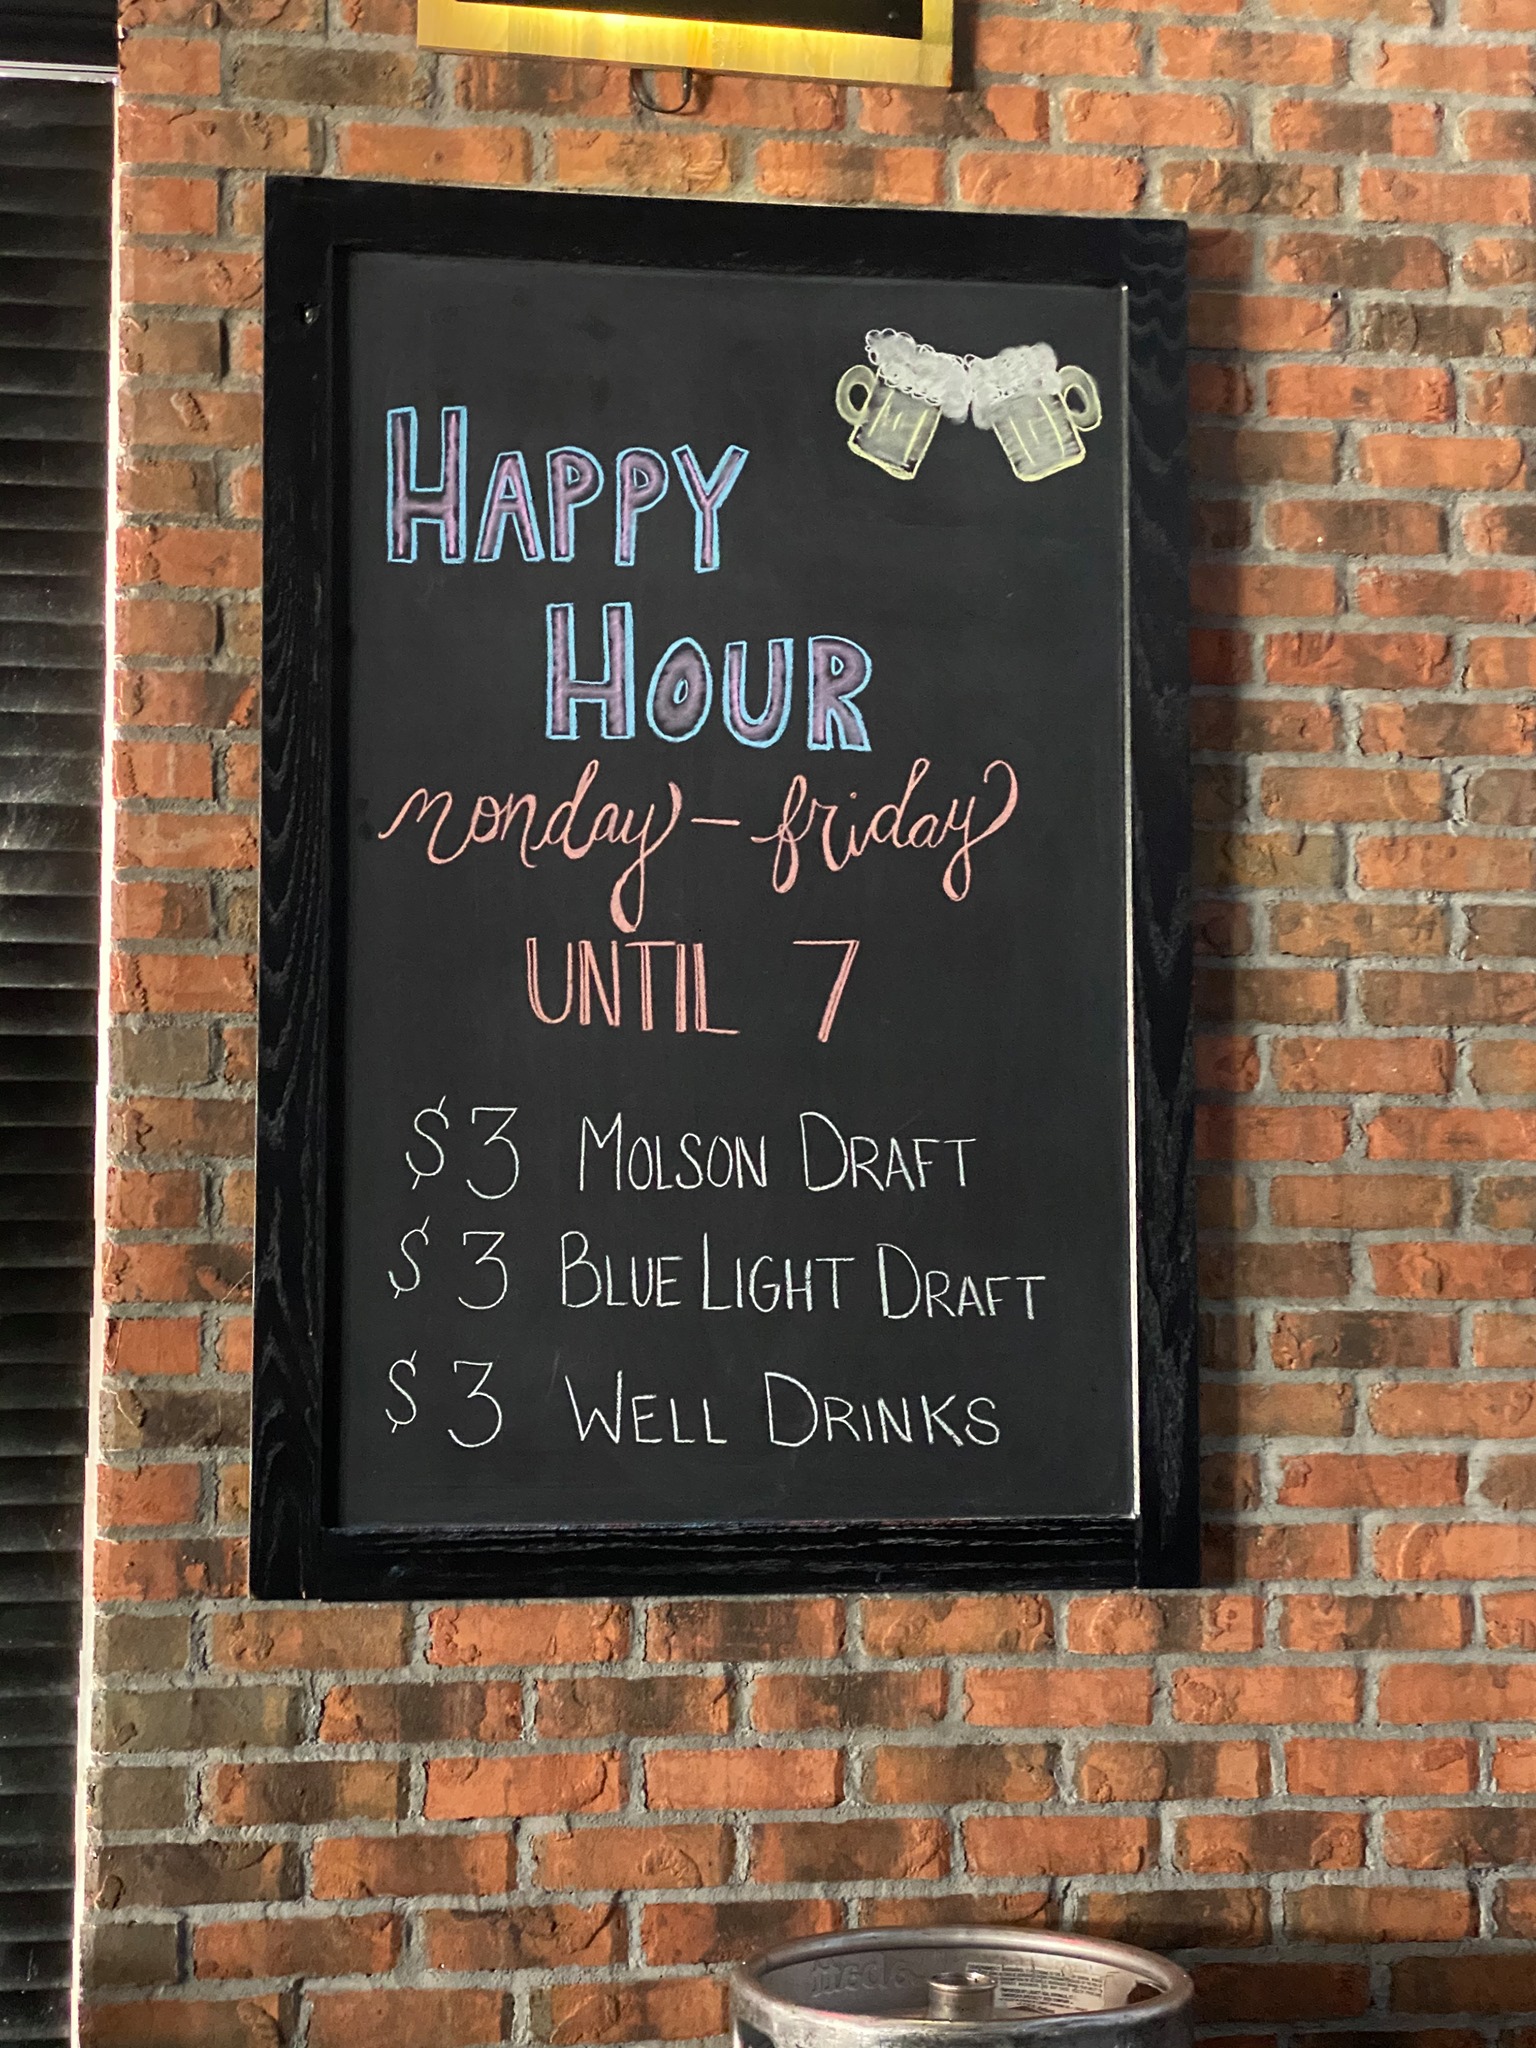 HAPPY
HOUR
monday - friday
UNTIL 7
$3 MOLSON DRAFT
$3 BLUE LIGHT DRAFT
$3 WELL DRINKS